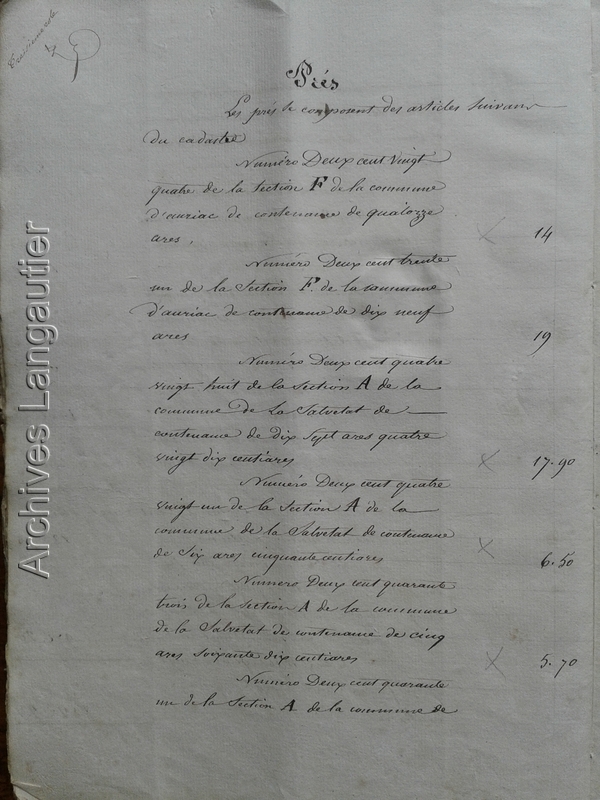 Prés
Les prés se composent des articles suivans
du cadastre
Numéro Deux cent vingt
quatre de la section F de la commune
d'auriac de contenance de quatorze
ares. 14
Numéro Deux cent trente
un de la section F. de la commune
d'auriac de contenance de dix neuf
ares 19
Numéro Deux cent quatre
vingt huit de la section A de la
commune de La Salvetat de
contenance de dix sept ares quatre
vingt dix centiares 17.90
Numéro Deux cent quatre
vingt un de la section A de la
commune de la Salvetat de contenance
de six ares cinquante centiares 6.50
Numero Deux cent quarante
trois de la section A de la commune
de la Salvetat de contenance de cinq
ares soixante dix centiares 5.70
Numéro Deux cent quarante
un de la section A de la commune de
Archives Langautier